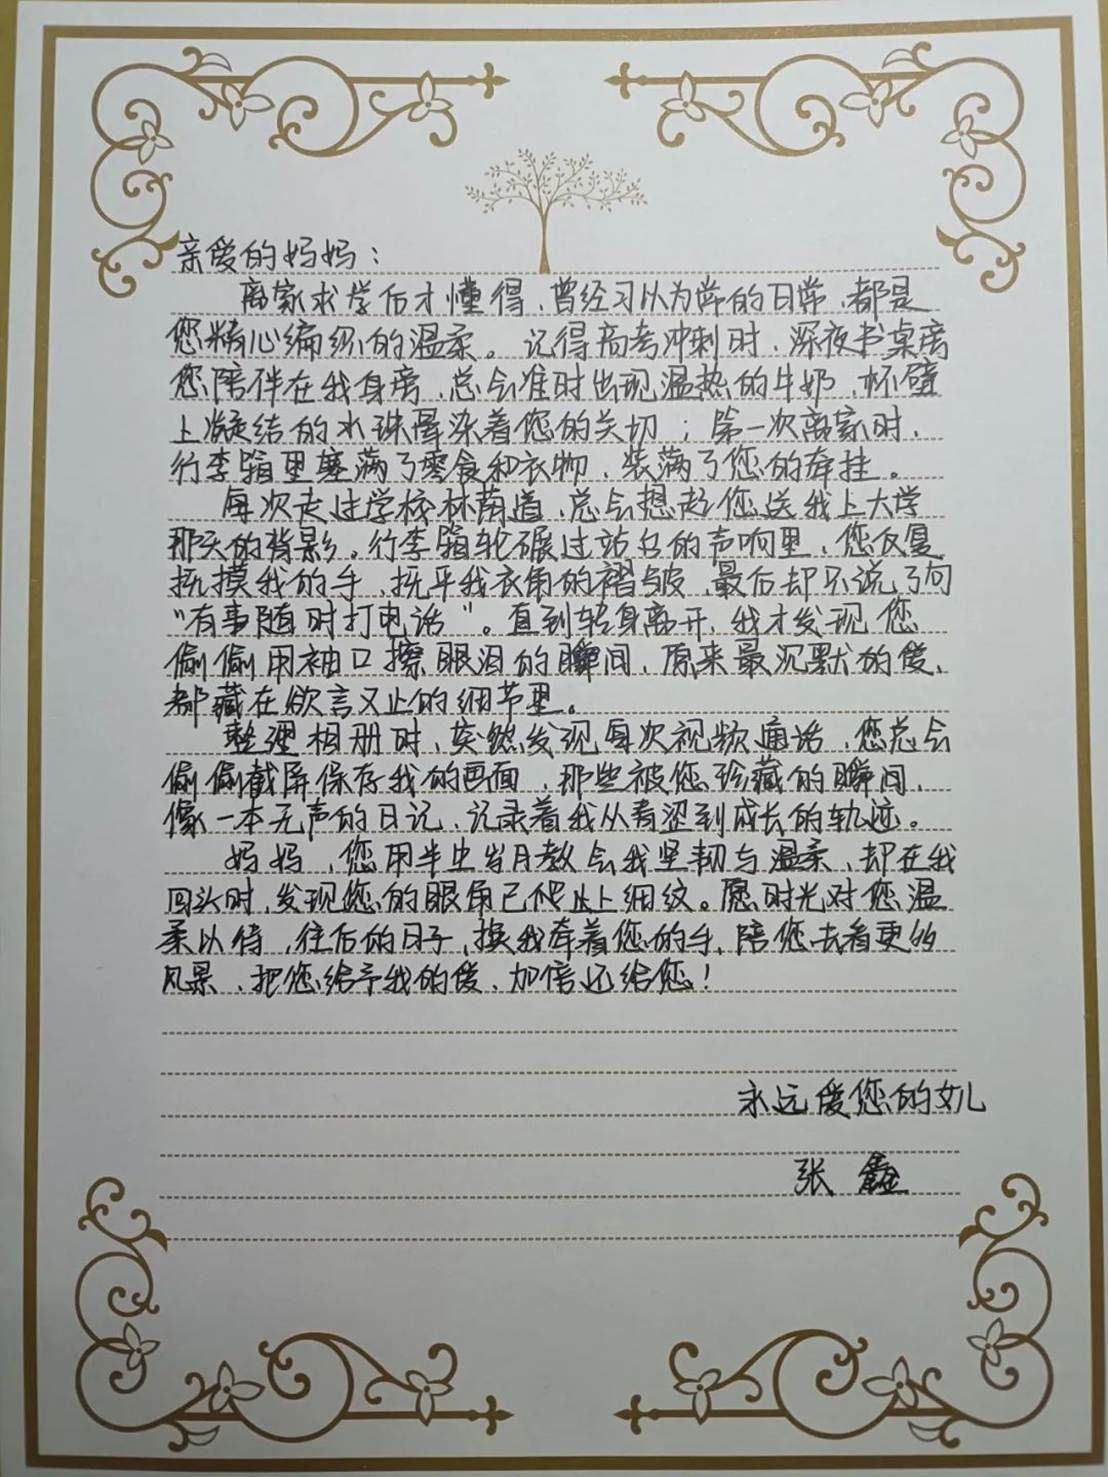 亲爱的妈妈：
离家求学后才懂得，曾经习以为常的日常，都是
您精心编织的温柔。记得高考冲刺时，深夜书桌旁
您陪伴在我身旁，总会准时出现温热的牛奶，杯壁
上凝结的水珠晕染着您的关切；第一次离家时，
行李箱里塞满了零食和衣物，装满了您的牵挂。
每次走过学校林荫道，总会想起您送我上大学
那天的背影。行李箱轮碾过站台的声响里，您反复
抚摸我的手，抚平我衣角的褶皱，最后却只说了句
“有事随时打电话”。直到转身离开，我才发现您
偷偷用袖口擦眼泪的瞬间，原来最沉默的爱，
都藏在欲言又止的细节里。
整理相册时，突然发现每次视频通话，您总会
偷偷截屏保存我的画面，那些被您珍藏的瞬间，
像一本无声的日记，记录着我从青涩到成长的轨迹。
妈妈，您用半生岁月教会我坚韧与温柔，却在我
回头时，发现您的眼角已爬上细纹。愿时光对您温
柔以待，往后的日子，换我牵着您的手，陪您去看更多
风景，把您给予我的爱，加倍还给您！
永远爱您的女儿
张鑫